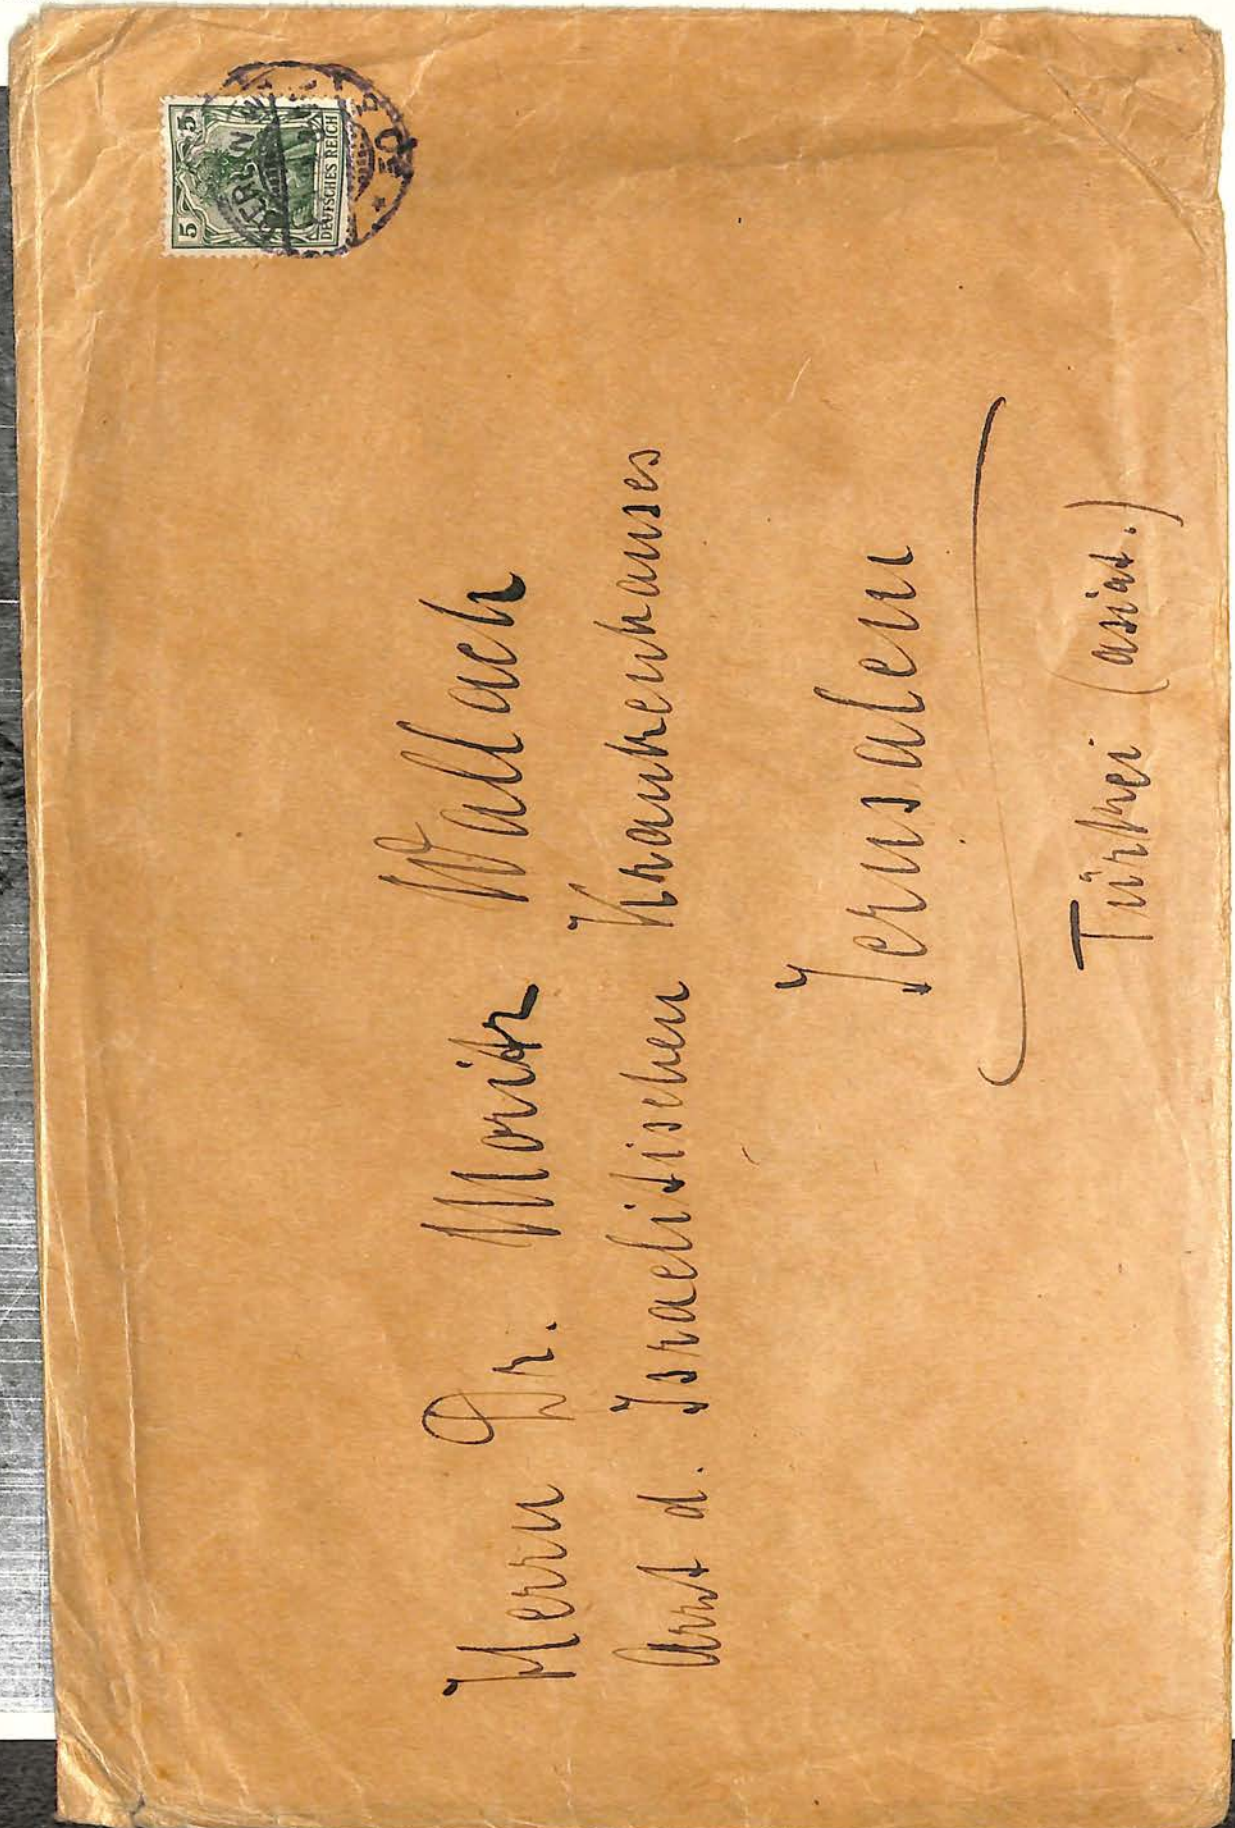 5 5
DEUTSCHES REICH
BERLIN
50
Herrn Dr. Moritz Wallach
Arzt d. Israelitischen Krankenhauses
Jerusalem
Türkei (asiat.)